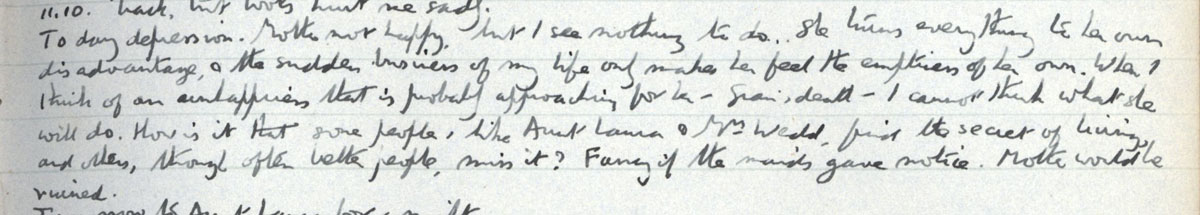 11.10. back, but boots hurt me sadly.
To day depression. Mother not happy, but I see nothing to do.. She turns everything to her own
disadvantage, & the sudden business of my life only makes her feel the emptiness of her own. When I
think of an unhappiness that is probably approaching for her – Gran's death – I cannot think what she
will do. How is it that some people, like Aunt Laura & Mrs Wedd, find the secret of living,
and others, though often better people, miss it? Fancy if the maids gave notice. Mother would be
ruined.
to Aunt Laura for a